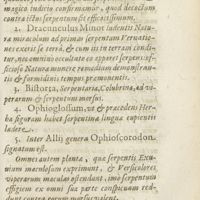 magico indicio confirmamur, quod decoctum
contra ictus serpentum sit efficacissimum.
2. Dracunculus Minor ludentis Naturæ
miraculum ad primas serpentum Vernationes
exerit se terrâ, & cum iis in terram conditur,
nec omninò occultatur eo apparet serpens,
Natura monere remedium demonstrantis
& formidinis tempus præmonentis.
3. Bistorta, Serpentaria, Colubrina, ad viperarum
& serpentum morsus.
4. Ophioglossum, vt & præcedens Herba
figuram habet serpentina lingua cupientis
lædere.
5. Inter Allij genera Ophioscorodon.
signatum est.
Omnes autem planta, qua serpentis Exuvium
maculosum exprimunt, & Versicolores,
viperarum maculas ostendunt, imo serpentum
effigiem ex omni sua parte conspicuam reddunt
contra eorum